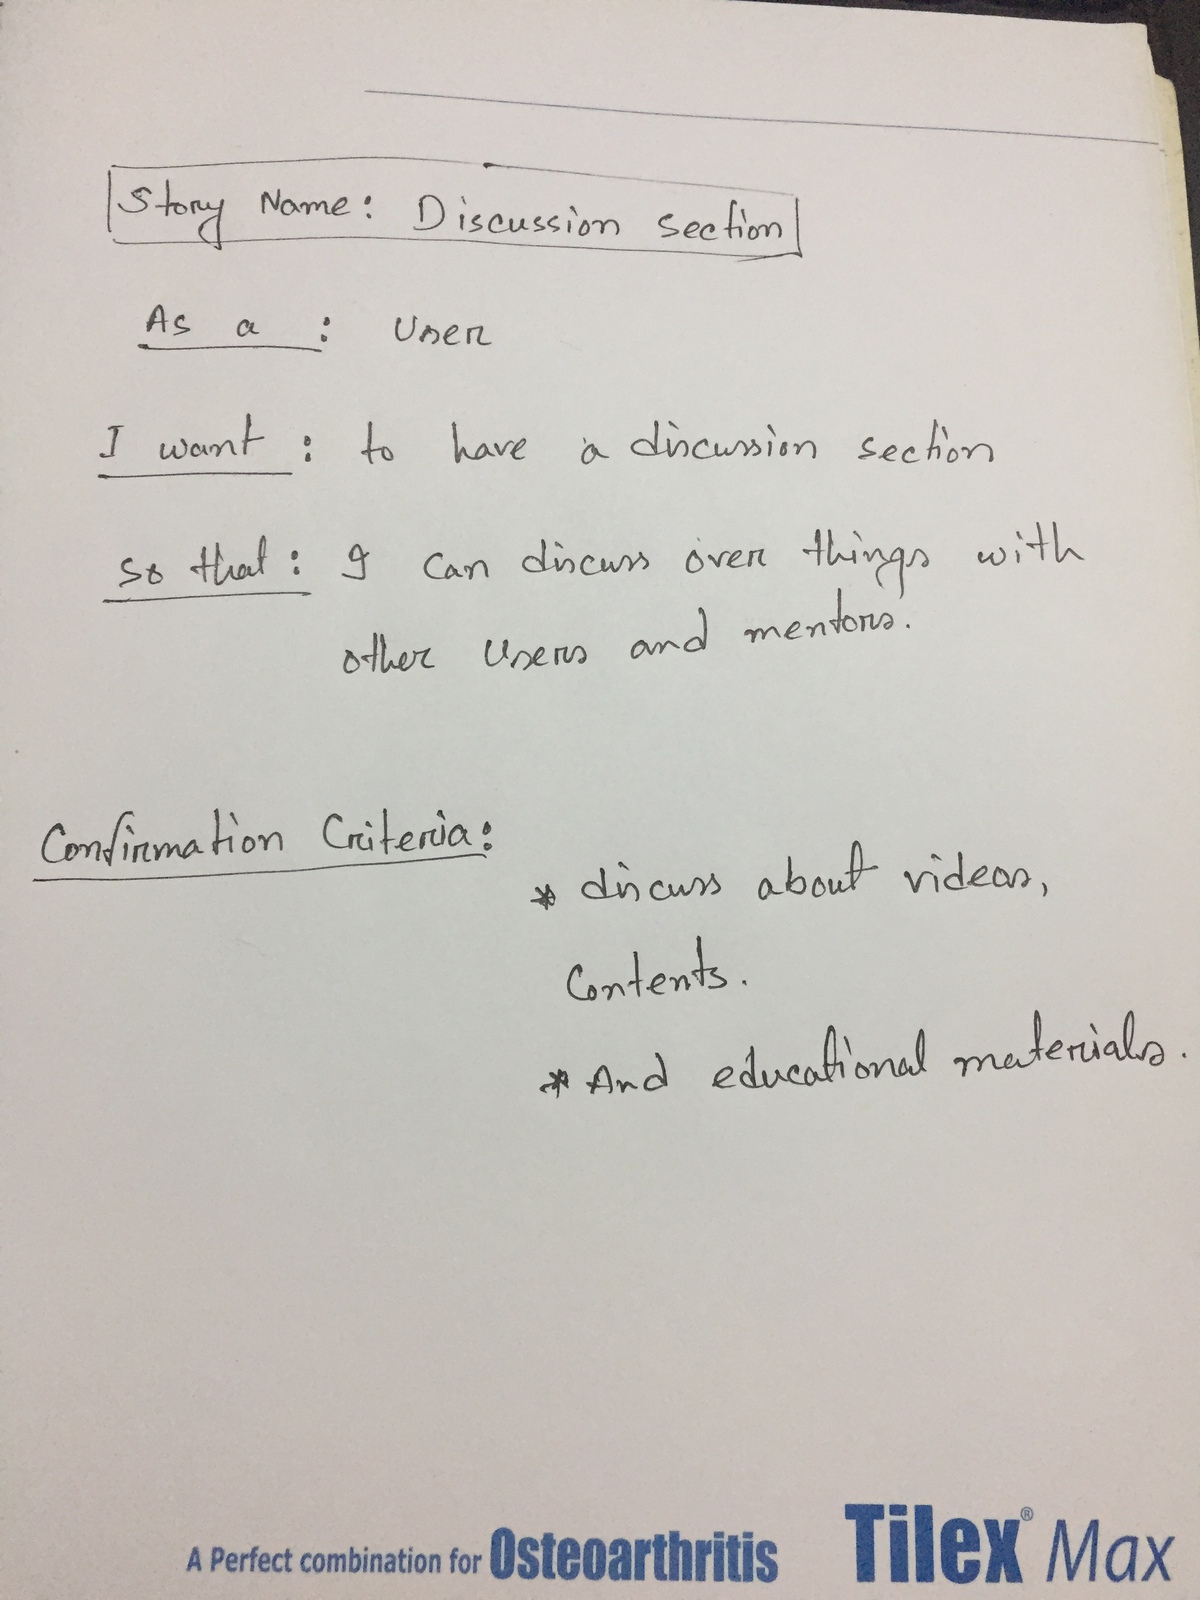 Story Name: Discussion section
As a : User
I want : to have a discussion section
so that : I can discuss over things with
other users and mentors.
Confirmation Criteria:
* discuss about videos,
Contents.
* And educational materials.
A Perfect combination for Osteoarthritis Tilex® Max